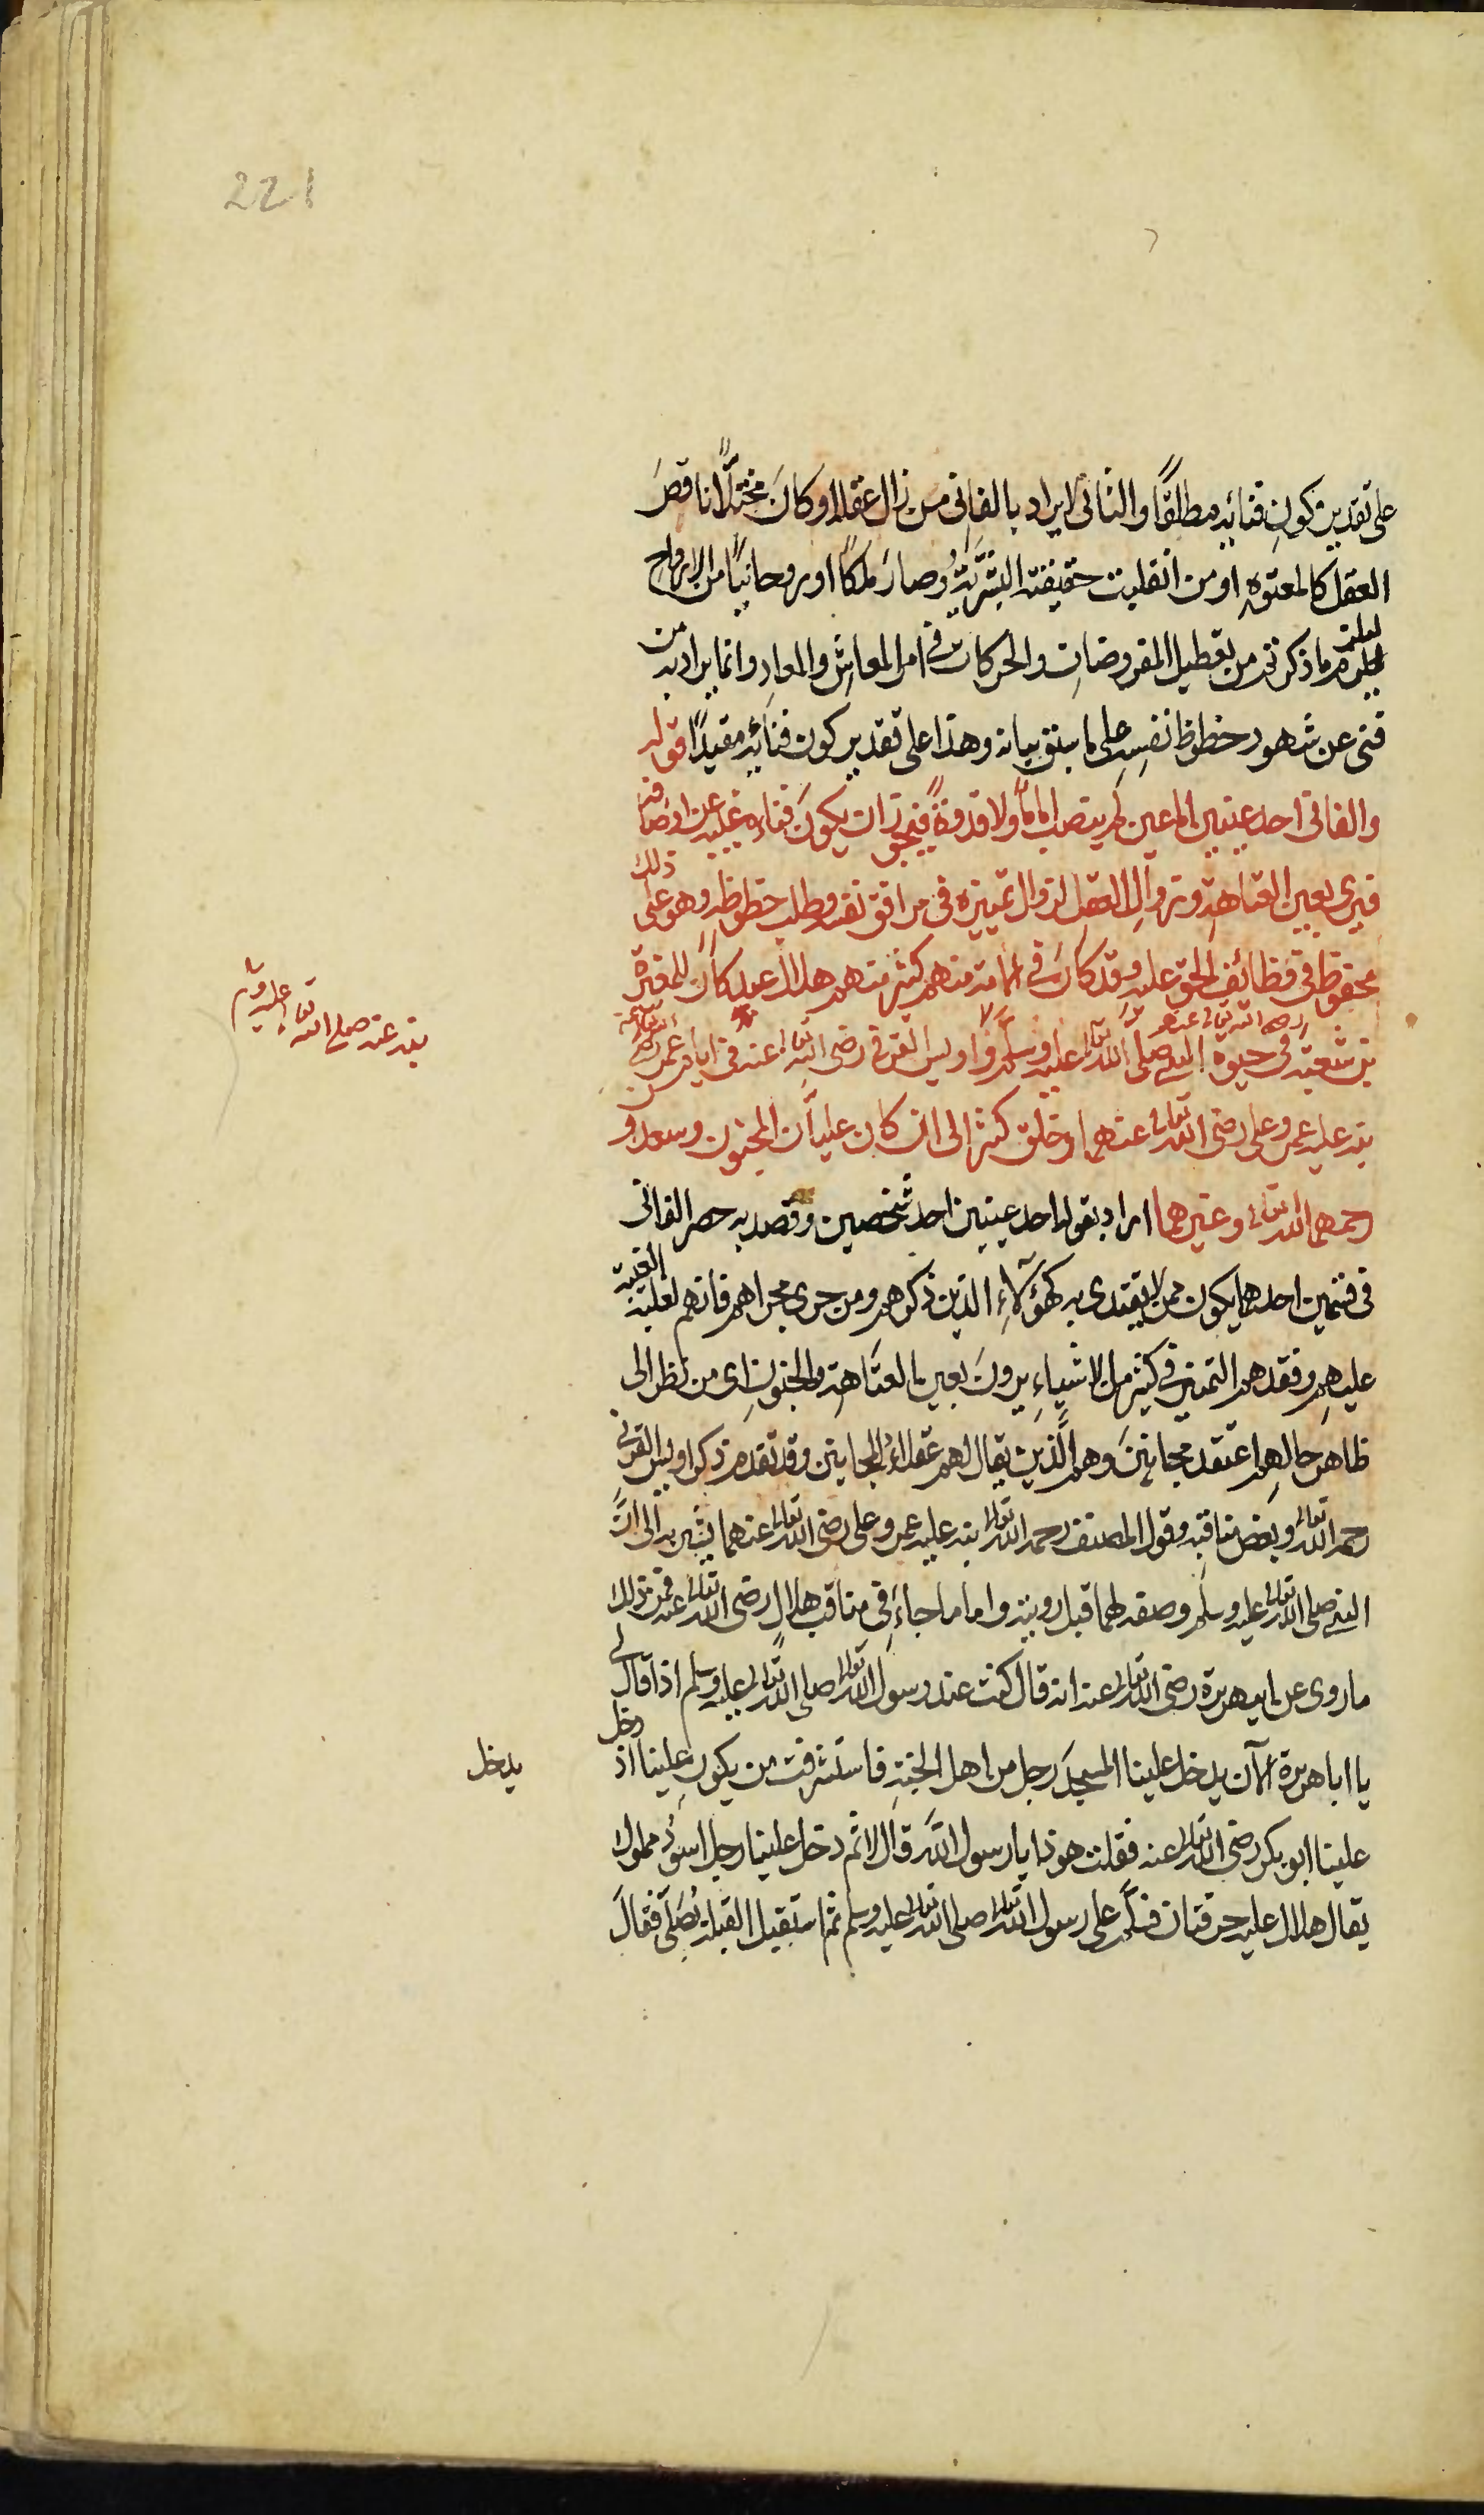 221
على تقدير كون فنائه مطلقًا والثاني لا يراد بالفاني من زال عقله او كان مختلًّا ناقص
العقل كالمعتوه او من انقلبت حقيقته البشرية وصار ملكًا او روحانيًا من الارواح
ليلزم ما ذكرتم من تعطيل المفروضات والحركات في امر المعاش والمعاد وانما يراد به من
فنى عن شهود حظوظ نفسه على ما سبق بيانه وهذا على تقدير كون فنائه مقيدًا قوله
والفاني احد عينين اما عين لم ينصب اماما ولا قدوة فيجوز ان يكون فناءه غيبه عن اوصافه
فيرى بعين العتاهة وزوال العقل لزوال تمييزه في مرافق نفسه وطلب حظوظه وهو على ذلك
محفوظ في وظائف الحق عليه وقد كان في الامة منهم كثير منهم هلال عبد كان للمغيرة
بن شعبة رضى الله تعالى عنه في حيوة النبى صلى الله تعالى عليه وسلم واويس القرني رضى الله تعالى عنه في ايام عمر رضى الله تعالى عنه
نبه عنه صلى الله تعالى عليه وسلم
نبه عليه عمر وعلى رضى الله تعالى عنهما وخلق كثير الى ان كان عليان المجنون وسعدو
رحمهما الله تعالى وغيرهما اراد بقوله احد عينين احد شخصين وقصد به حصر الفاني
في قسمين احدهما يكون ممن لا يقتدى به كهؤلاء الذين ذكرهم ومن جرى مجراهم فانهم لغلبة الغيبة
عليهم وفقدهم التمييز في كثير من الاشياء يرون بعين العتاهة والجنون اى من نظر الى
ظاهر حالهم اعتقد مجانين وهم الذين يقال لهم عقلاء المجانين وقد تقدم ذكر اويس القرني
رحمه الله تعالى وبعض مناقبه وقول المصنف رحمه الله تعالى نبه عليه عمر وعلى رضى الله تعالى عنهما يشير به الى ان
النبى صلى الله تعالى عليه وسلم وصفه لهما قبل رويته واما ما جاء في مناقب هلال رضى الله تعالى عنه فمن ذلك
ما روى عن ابى هريرة رضى الله تعالى عنه انه قال كنت عند رسول الله تعالى صلى الله تعالى عليه وسلم اذ قال لى
يا ابا هريرة الآن يدخل علينا المسجد رجل من اهل الجنة فاستشرفت من يكون علينا اذ دخل
يدخل
علينا ابو بكر رضى الله تعالى عنه فقلت هو ذا يا رسول الله قال لا ثم دخل علينا رجل اسود مملوك
يقال هلال عليه خرقتان فسلم على رسول الله تعالى صلى الله تعالى عليه وسلم ثم استقبل القبلة يصلى فقال